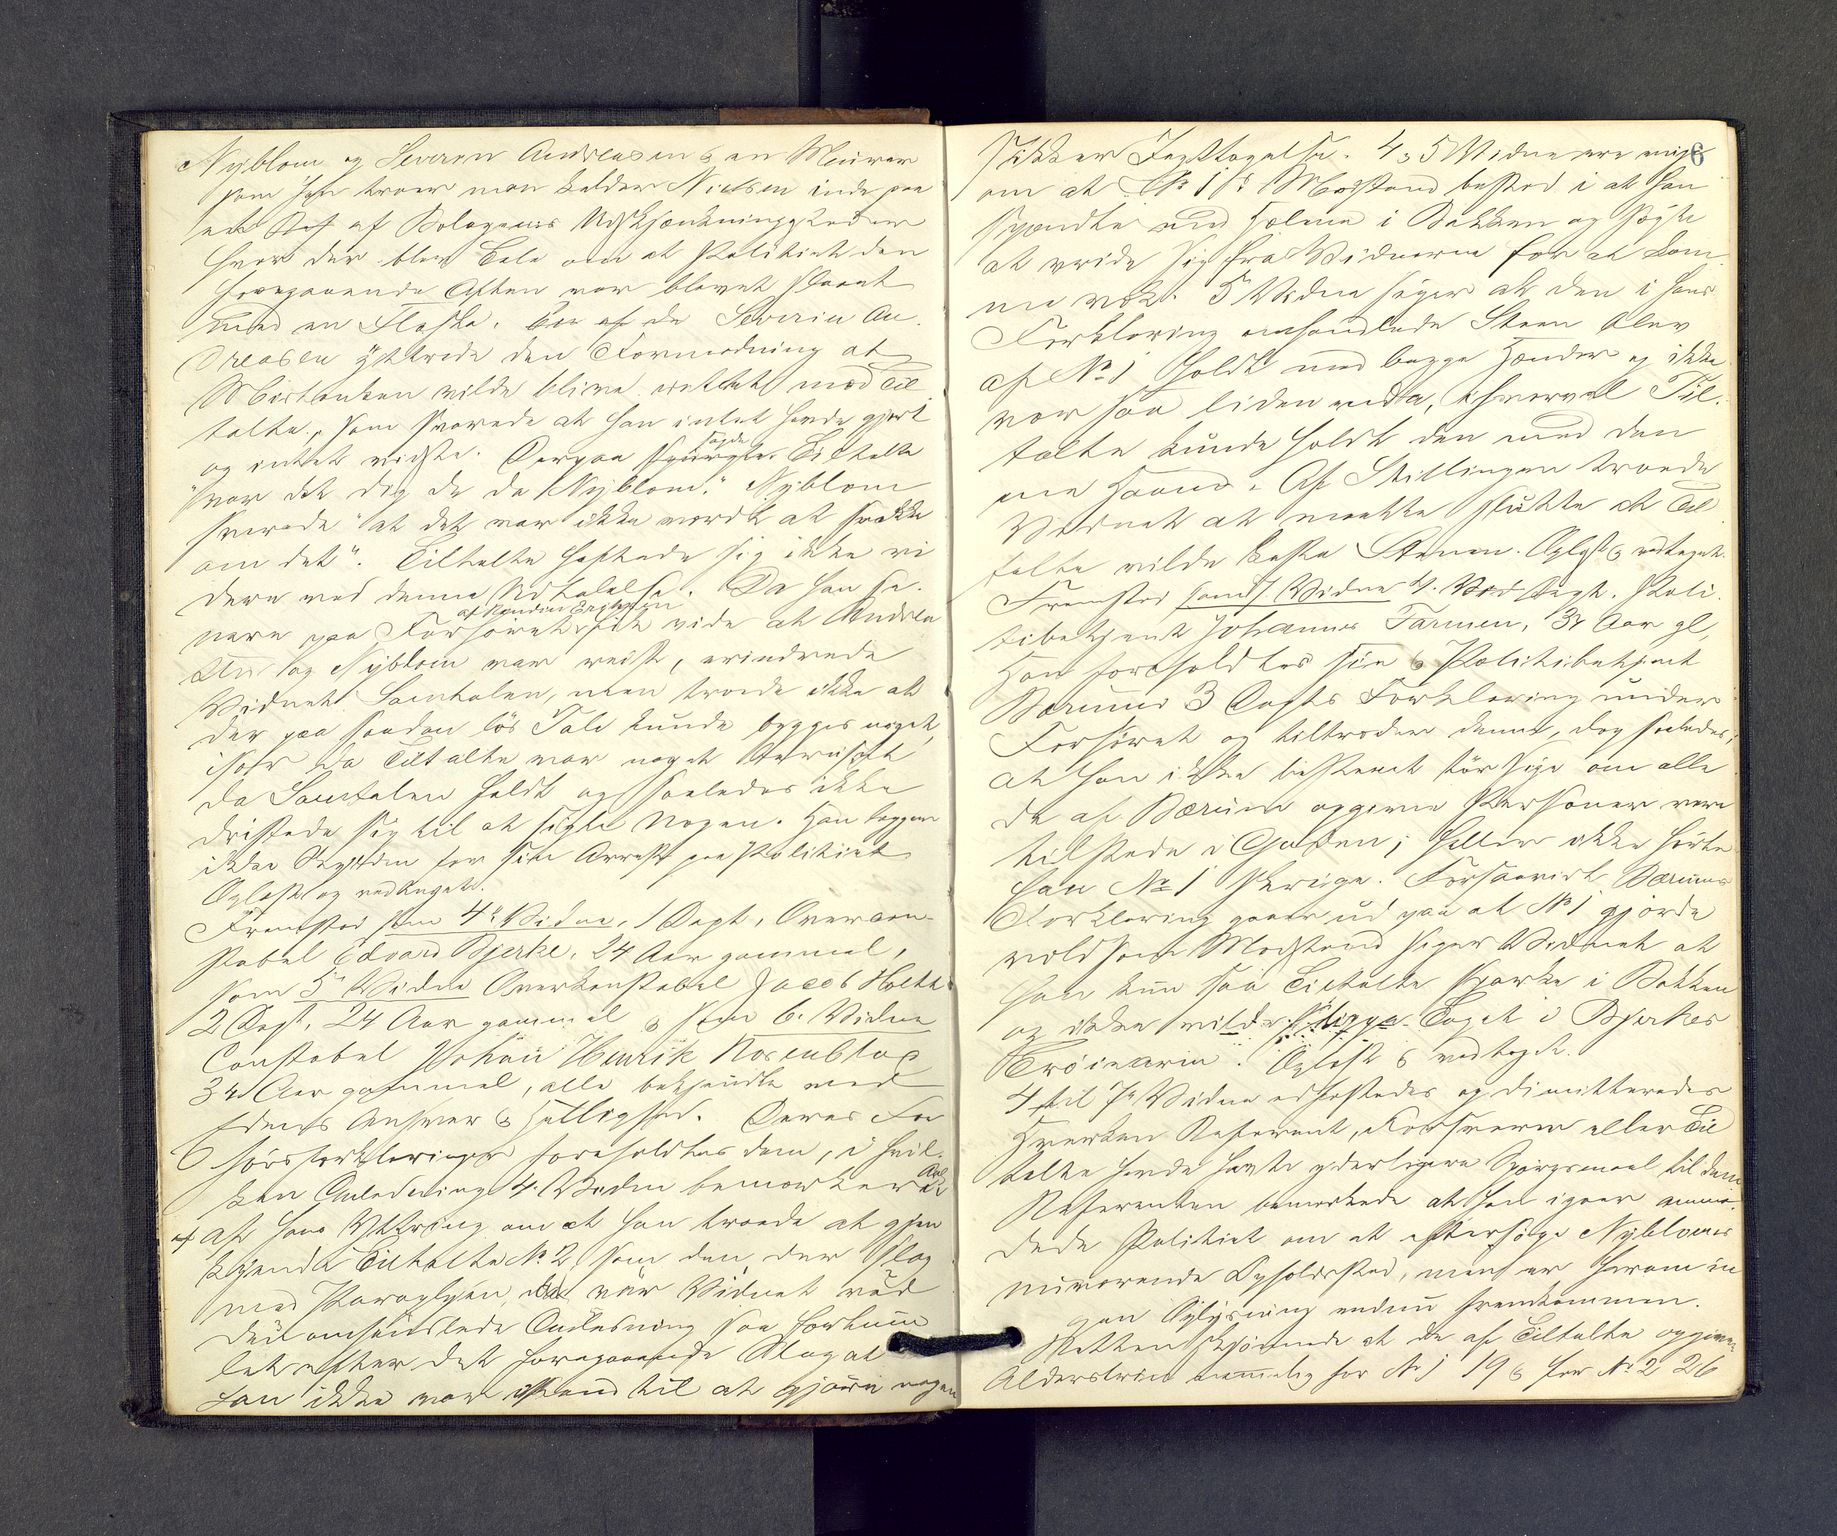 Nyblom og Severin Andreasen & en Murer
som han troer man kalder Nielsen inde paa
et Sted af Bolagenes Udskjænkningssteder
hvor der blev Tale om at Politiet den
foregaaende Aften var blevet slaaet
med en Flaske. En af de Severin An-
dreasen yttrede den Formodning at
Mistanken vilde blive rettet mod Til
talte, som svarede at han intet havde gjort
og intet vidste. Derpaa sagde Tiltalte
"var det dig da du Nyblom." Nyblom
svarede "at det var ikke værdt at snakke
om det". Tiltalte heftede sig ikke vi
dere ved denne Udtalelse. Da han se-
nere paa Forhøret fik vide at Andrea
sen og Nyblom var reist, erindrede
Vidnet Samtalen, men troede ikke at
der paa saadan løs Tale kunde bygges noget,
især da Tiltalte var noget beruset
da Samtalen faldt og saaledes ikke
dristede sig til at sigte Nogen. Han lægger
ikke Skylden for sin Arrest paa Politiet
Oplæst og vedtaget.
Fremstod som 4de Vidne, 1 Dept. Overcon-
stabel Edvard Bjerke, 24 Aar gammel,
som 5te Vidne Overkonstabel Jacob Holth
2 Dept, 24 Aar gammel & som 6. Vidne
Constabel Johan Henrik Rosenblad
34 Aar gammel, alle bekjendte med
Edens Ansvar & Hellighed. Deres For
hørsforklaringer foreholdtes dem, i hvil-
ken Anledning 4. Vidne bemærker at
af hans Yttring om at han troede at gjen
kjende Tiltalte No 2, som den, der slog
med Paraplyen, da var Vidnet ved
den omhandlede Anledning saa fortum
let efter det foregaaende Slag at
han ikke var istand til at gjøre nogen
6
sikker Iagttagelse. 4 & 5 Vidne ere enige
om at No 1s Modstand bestod i at han
spændte med Hælene i Bakken og søgte
at vride sig fra Vidnerne for at kom-
me væk. 5 Vidne siger at den i hans
Forklaring omhandlede Steen blev
af No 1 holdt med begge Hænder og ikke
var saa liden endda, hvorvel Til-
talte kunde holdt den med den
ene Haand. Af Stillingen troede
Vidnet at maatte slutte at Til
talte vilde kaste Stenen. Oplæst & vedtaget.
Fremstod som 7 Vidne 4. Vid. Dept. Poli-
tibetjent Johannes Farmen, 31 Aar gl,
Han foreholdtes sin & Politibetjent
Bærums 3 Depts Forklaring under
Forhøret og tiltræder denne, dog saaledes,
at han ikke bestemt tør sige om alle
de af Bærum opgivne Personer vare
tilstede i Gaden; heller ikke hørte
han No 1 skrige. Forsaavidt Bærums
Forklaring gaar ud paa at No 1 gjorde
voldsom Modstand siger Vidnet at
han kun saa Tiltalte sparke i Bakken
og ikke vilde slippe Taget i Bjerkes
Trøiearm. Oplæst & vedtaget.
4 til 7de Vidne edfæstedes og dimitteredes
Hverken Referent, Forsvarer eller Til
talte havde havte yderligere Spørgsmaal til dem
Referenten bemærkede at han igaar anmo-
dede Politiet om at eftersøge Nybloms
nuværende Opholdssted, men er herom in
gen Oplysning endnu fremkommen.
Retten skjønnede at de af Tiltalte opgivne
Alderstrin nemlig for No 1 19 & for No 2 26